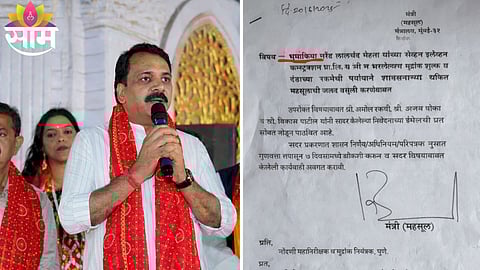 साम
मंत्री
(महसूल)
मंत्रालय, मुंबई-३२
दिनांक
विषय – भूमाफिया नरेंद्र लालचंद मेहता यांच्या सेव्हन इलेव्हन
कन्स्ट्रक्शन प्रा.लि. यांनी न भरलेल्या मुद्रांक शुल्क व
दंडाच्या रकमेची पर्यायाने शासनाच्या थकित
महसूलाची जलद वसुली करणेबाबत
उपरोक्त विषयाबाबत श्री. अमोल रकवी, श्री. अजय धोका
व श्री. विकास पाटील यांनी सादर केलेल्या निवेदनाच्या ईमेलची प्रत
सोबत जोडून पाठवित आहे.
सदर प्रकरणात शासन निर्णय/अधिनियम/परिपत्रक नुसार
गुणवत्ता तपासून ७ दिवसामध्ये चौकशी करून व सदर विषयाबाबत
केलेली कार्यवाही अवगत करावी.
मंत्री (महसूल)
प्रति,
नोंदणी महानिरीक्षक व मुद्रांक नियंत्रक, पुणे.
प्रत,